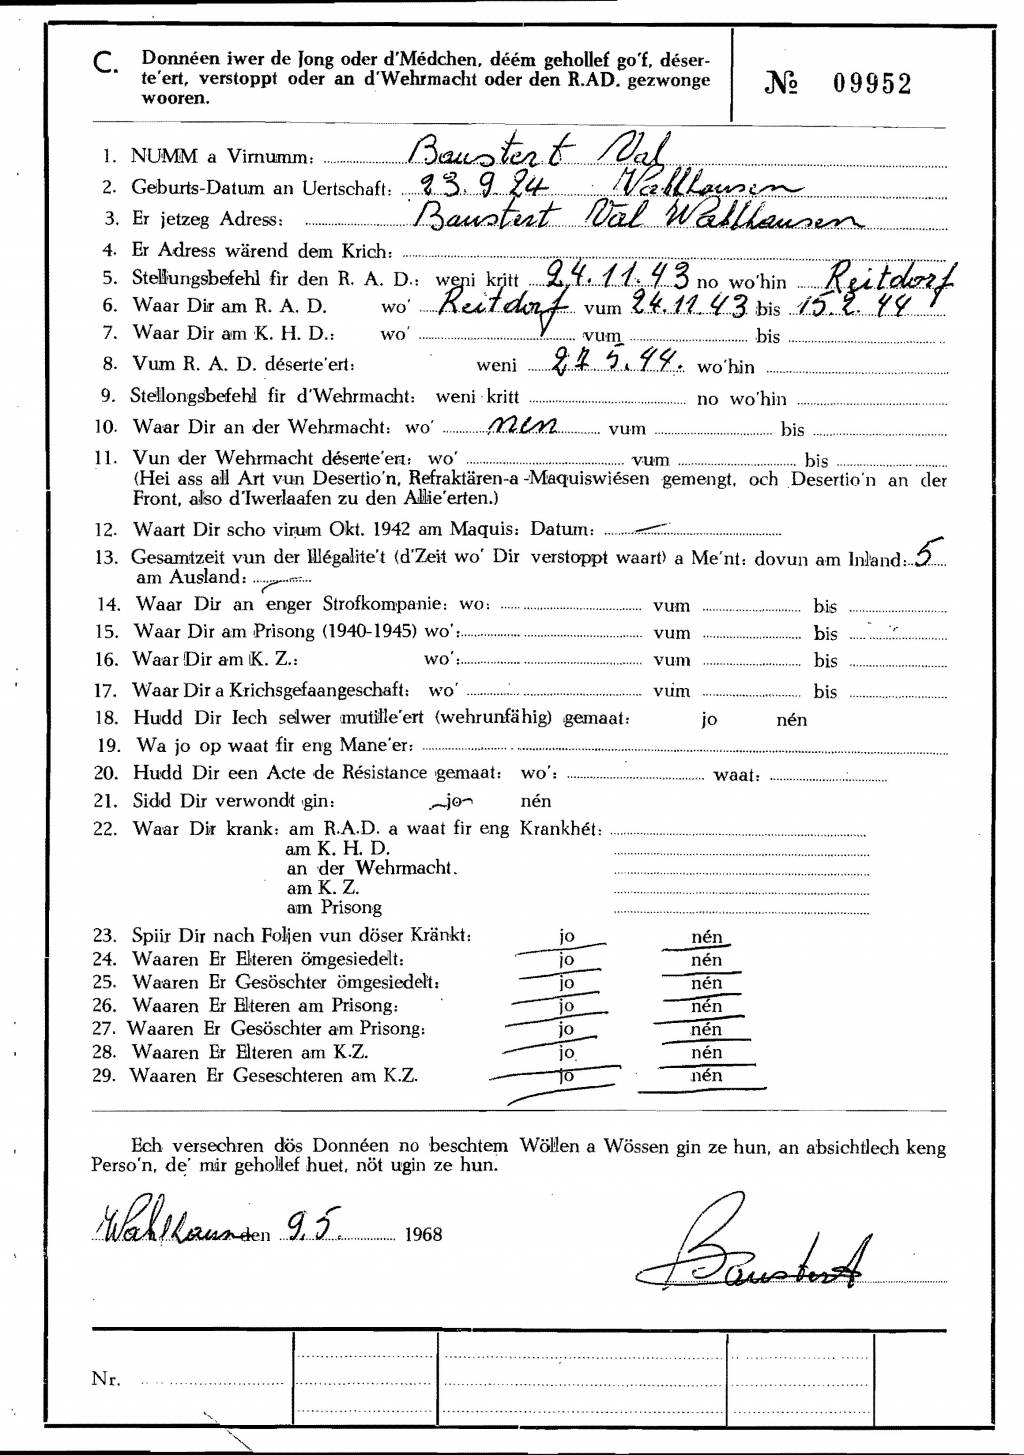 C. Donnéen iwer de Jong oder d'Médchen, déém gehollef go'f, déser-
te'ert, verstoppt oder an d'Wehrmacht oder den R.AD. gezwonge
wooren.
№ 09952
1. NUMM a Virnumm: Baustert Val
2. Geburts-Datum an Uertschaft: 23.9.24 Wahlhausen
3. Er jetzeg Adress: Baustert Val Wahlhausen
4. Er Adress wärend dem Krich:
5. Stellungsbefehl fir den R. A. D.: weni kritt 24.11.43 no wo'hin Reitdorf
6. Waar Dir am R. A. D. wo' Reitdorf vum 24.11.43 bis 15.2.44
7. Waar Dir am K. H. D.: wo' vum bis
8. Vum R. A. D. déserte'ert: weni 27.5.44. wo'hin
9. Stellongsbefehl fir d'Wehrmacht: weni kritt no wo'hin
10. Waar Dir an der Wehrmacht: wo' nen vum bis
11. Vun der Wehrmacht déserte'ert: wo' vum bis
(Hei ass all Art vun Desertio'n, Refraktären-a-Maquiswiésen gemengt, och Desertio'n an der
Front, also d'Iwerlaafen zu den Allie'erten.)
12. Waart Dir scho virum Okt. 1942 am Maquis: Datum:
13. Gesamtzeit vun der Illégalite't (d'Zeit wo' Dir verstoppt waart) a Me'nt: dovun am Inland: 5
am Ausland:
14. Waar Dir an enger Strofkompanie: wo: vum bis
15. Waar Dir am Prisong (1940-1945) wo': vum bis
16. Waar Dir am K. Z.: wo': vum bis
17. Waar Dir a Krichsgefaangeschaft: wo' vum bis
18. Hudd Dir Iech selwer mutille'ert (wehrunfähig) gemaat: jo nén
19. Wa jo op waat fir eng Mane'er:
20. Hudd Dir een Acte de Résistance gemaat: wo': waat:
21. Sidd Dir verwondt gin: jo nén
22. Waar Dir krank: am R.A.D. a waat fir eng Krankhét:
am K. H. D.
an der Wehrmacht.
am K. Z.
am Prisong
23. Spiir Dir nach Foljen vun döser Kränkt: jo nén
24. Waaren Er Elteren ömgesiedelt: jo nén
25. Waaren Er Gesöschter ömgesiedelt: jo nén
26. Waaren Er Elteren am Prisong: jo nén
27. Waaren Er Gesöschter am Prisong: jo nén
28. Waaren Er Elteren am K.Z. jo nén
29. Waaren Er Geseschteren am K.Z. jo nén
Ech versechren dös Donnéen no beschtem Wöllen a Wössen gin ze hun, an absichtlech keng
Perso'n, de' mir gehollef huet, nöt ugin ze hun.
Wahlhausen den 9.5. 1968
Baustert
Nr.